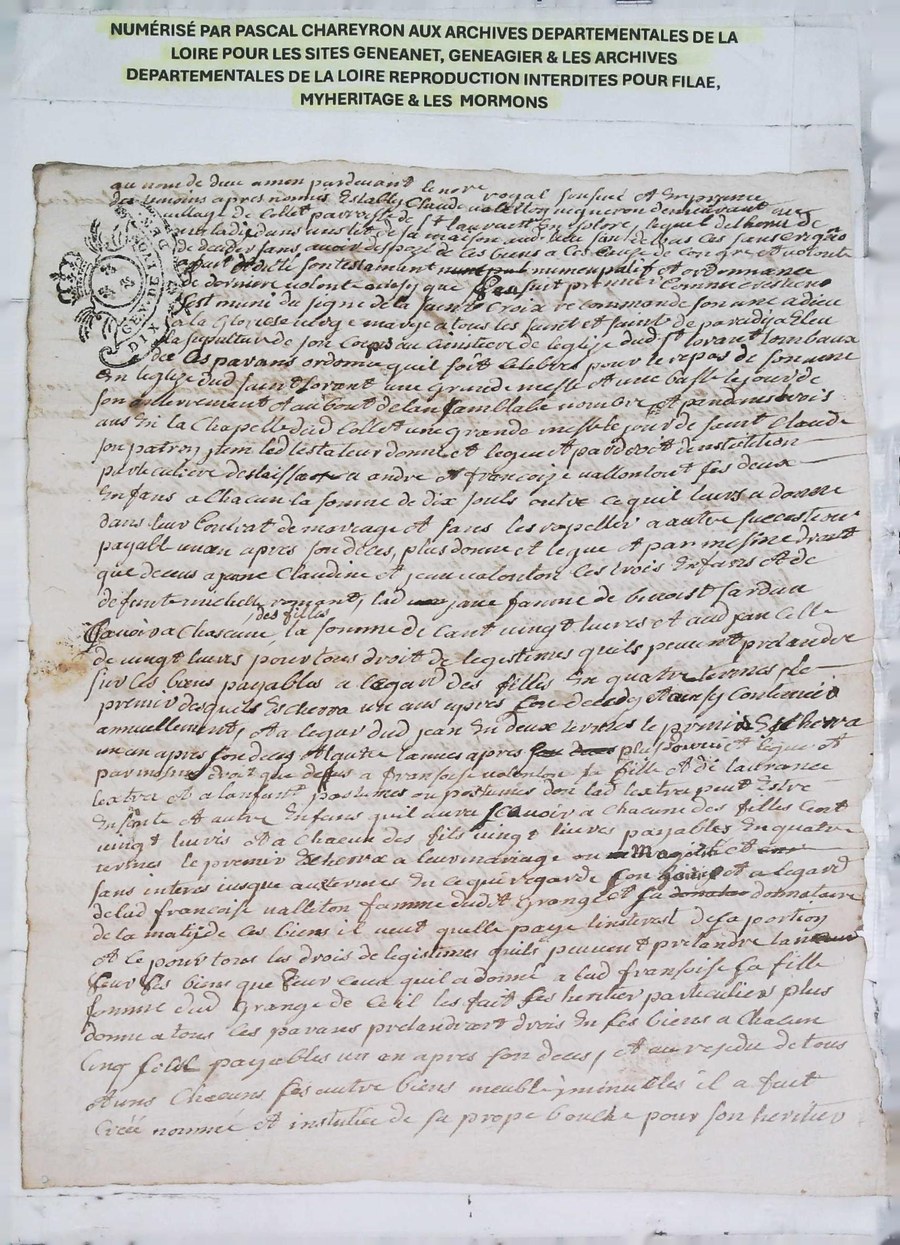 NUMÉRISÉ PAR PASCAL CHAREYRON AUX ARCHIVES DEPARTEMENTALES DE LA
LOIRE POUR LES SITES GENEANET, GENEAGIER & LES ARCHIVES
DEPARTEMENTALES DE LA LOIRE REPRODUCTION INTERDITES POUR FILAE,
MYHERITAGE & LES MORMONS
au nom de dieu amen pardevant le nore royal
des temoins apres nommes Estably Claude valleton vigneron demeurant au
village de Collet parroisse de st laurant
malade dans un lit de sa maison aud lieu
de deceder sans avoir dispozé de ces biens a ces cause de son gre et volonte
a fait et dicté son testament numcupatif et ordonnance
de derniere volonte ainsy que sen suit premier comme crestien
sest muni du signe de la sainte Croix recommande son ame a dieu
a la Gloriese vierge marye a tous les saint et sainte de paradij a Eleu
la sepulture de son Corps au simstiere de leglise dud st lorant tombaux
de ces parans ordonne quil soit selebres pour le repos de son ame
en leglise dud saint lorant une grande messe et une basse le jour de
son enterrement et au bout de lan samblable nombre et pandant trois
ans en la Chapelle dud Collet une grande messe le jour de saint Claude
son patron, item led testateur donne et legue et par droit dinstitution
particuliere delaisse a andre et francoize vallonton ses deux
enfans a chacun la somme de dix souls outre ce quil leurs a donne
dans leur Contrat de mariage et sans les rapeller a autre succession
payable un an apres son deces, plus donne et legue et par mesme droit
que decus a jane Claudine et jean valonton ces trois enfans et de
defunte michelle romant, lad jane famme de benoist jardun
des filles
scavoir a chascune la somme de cant vingt livres et aud jean celle
de vingt livres pour tous droit de legestimes quils peuvent pretandre
sur ces biens payables a legard des filles en quatre termes le
premier desquels Escherra un ans apres son deces et ainsy Continuera
annuellement, et a legar dud jean en deux termes le premier Escherra
un an apres son deces et lautre lannee apres plus donne et legue et
par mesme droit que desus a franssoise valonton sa fille et de laurance
et a lanfant postumes ou postumes don lad peut Estre
ensinte et autre enfans quil aura scavoir a chacune des filles cent
vingt livres et a chacun des fils vingt livres payables en quatre
termes le premier Escherra a leur mariage ou Majorité et
sans interes jusque aux termes en ce qui regarde son et a legard
de lad francoise valleton famme dudit Grange et sa donnataire
de la motié de ces biens il veut quelle paye linterest de sa portion
et ce pour tous les drois de legestimes quils peuvent pretandre tan
sur ses biens que sur ceux quil a donné a lad franssoise sa fille
femme dud Grange de ce il les fait ses heritier particulier plus
donne a tous ces parans pretandrant drois en ses biens a chacun
cinq sols payables un an apres son deces, et au residu de tous
et uns Chacuns ses autre biens meuble ymmubles il a fait
Créé nommé et instituée de sa prope bouche pour son heritier